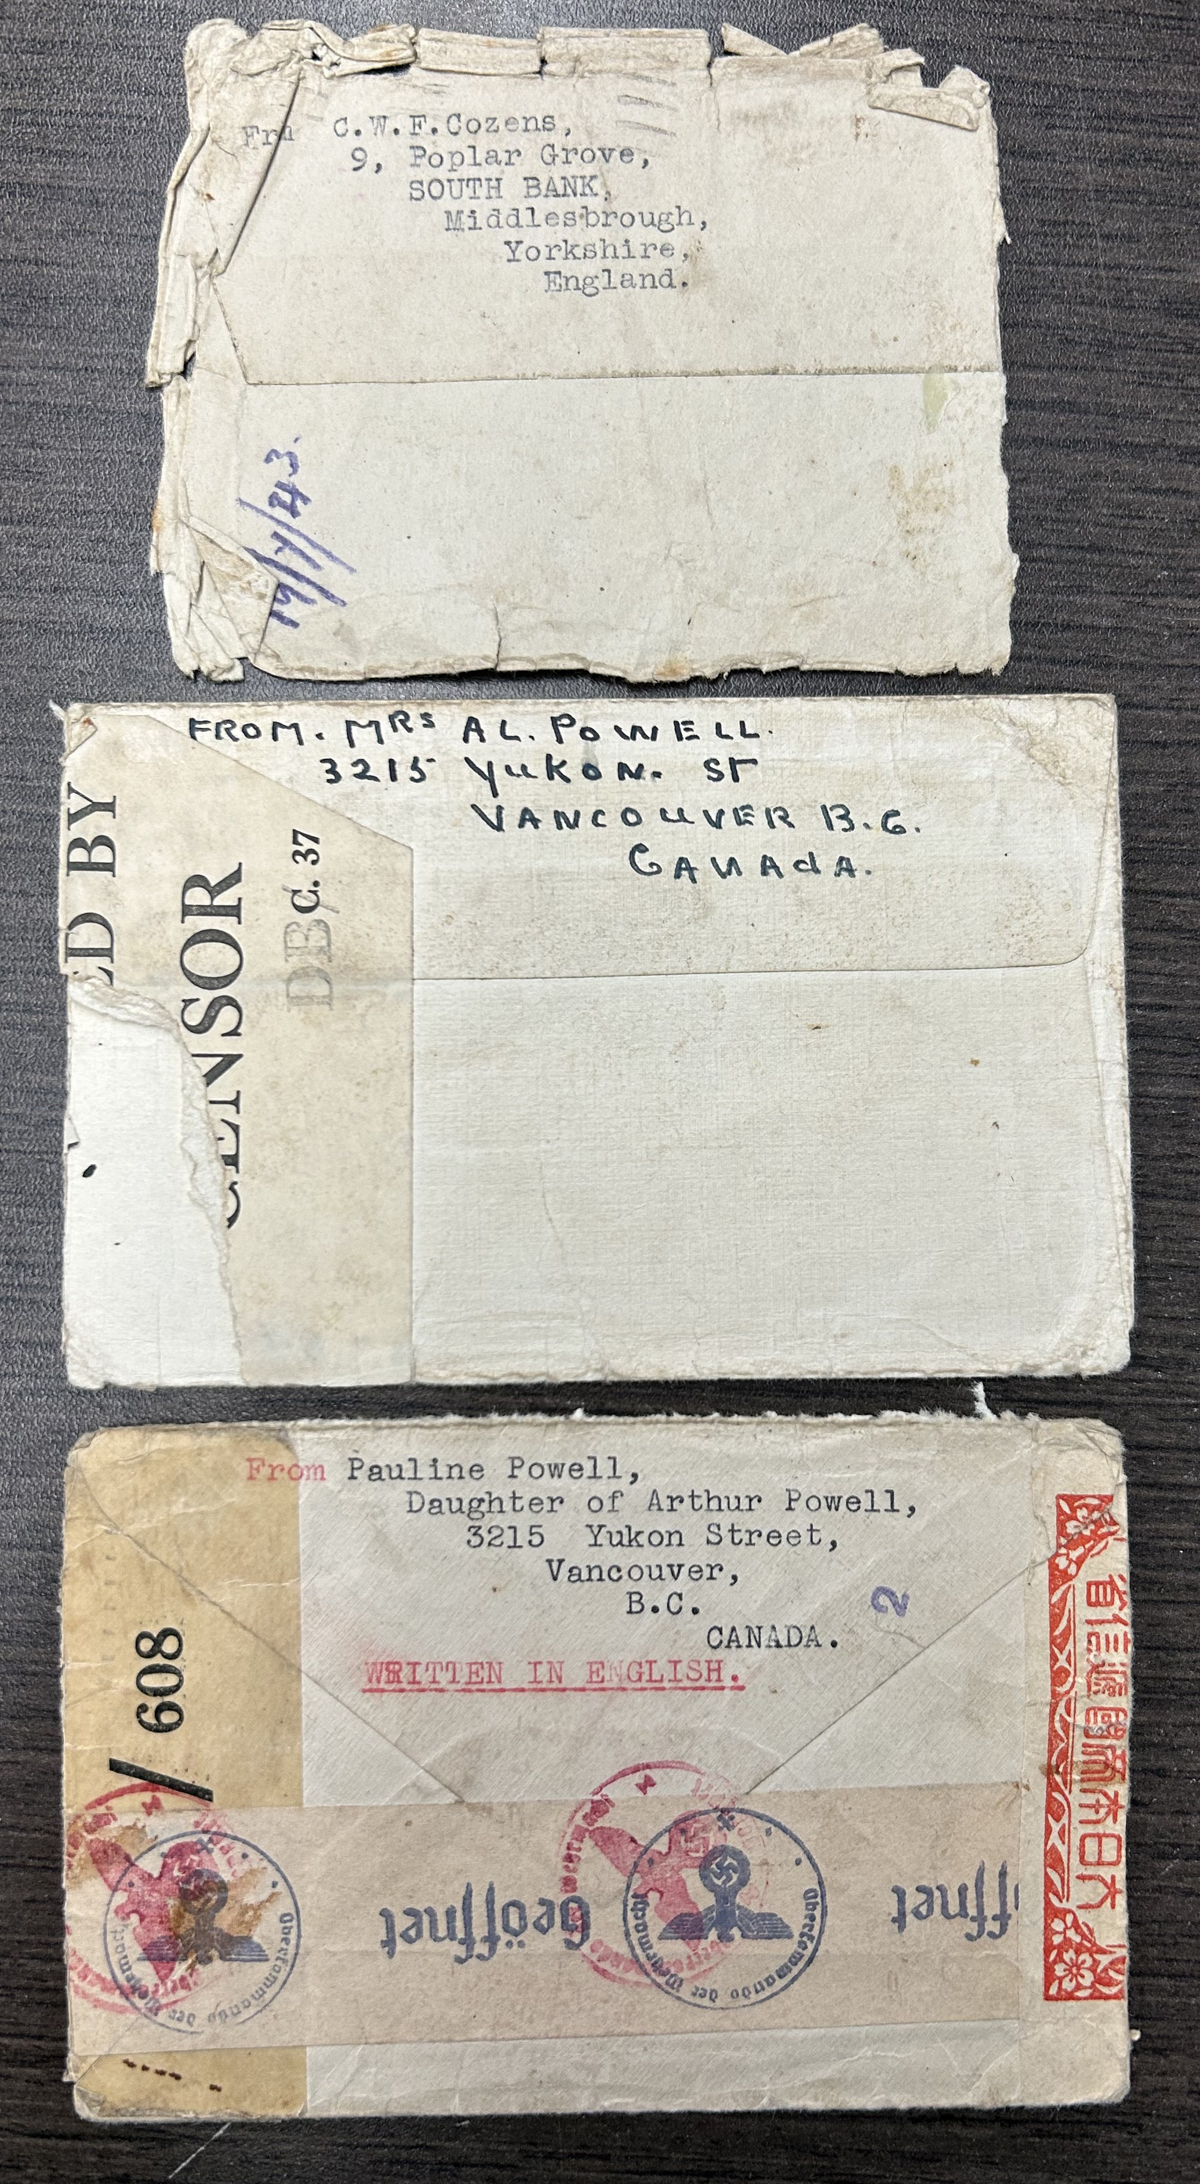 Frm C.W.F.Cozens,
9, Poplar Grove,
SOUTH BANK,
Middlesbrough,
Yorkshire,
England.
FROM. MRS AL. POWELL.
3215 YUKON. ST
VANCOUVER B.C.
CANAdA.
ED BY
CENSOR
C. 37
DB/
From Pauline Powell,
Daughter of Arthur Powell,
3215 Yukon Street,
Vancouver,
B.C.
CANADA.
2
WRITTEN IN ENGLISH.
/ 608
Geöffnet
ffnet
Oberkommando der Wehrmacht
Oberkommando der Wehrmacht
大日本帝國遞信省